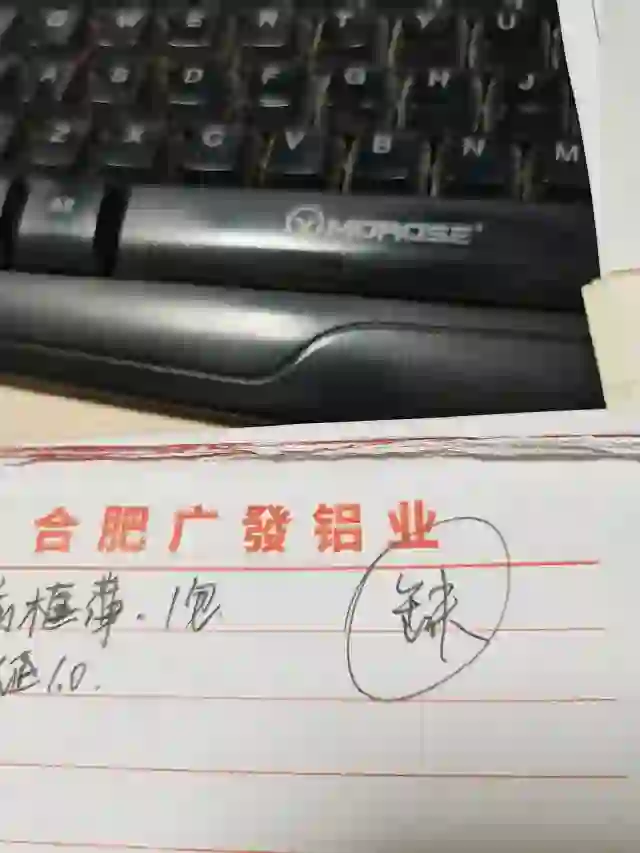 Q W E R T Y U
A S D F G H J
Z X C V B N M
Alt
MOROSE
合肥广發铝业
框薄.1包
1.0.